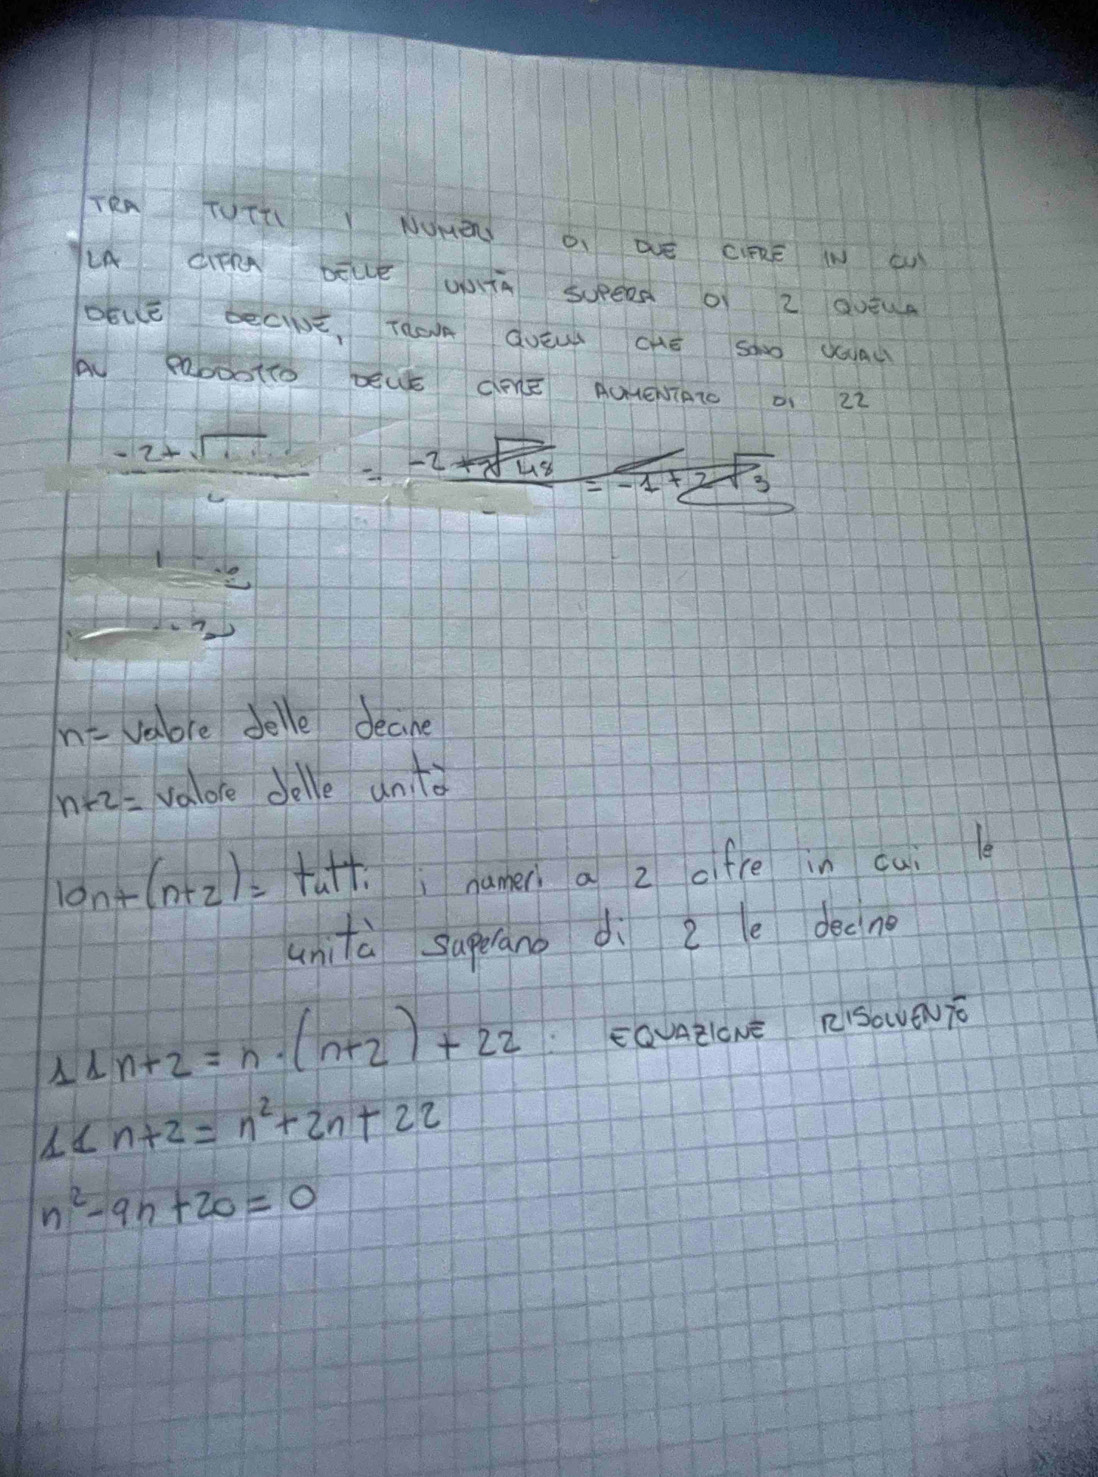 TRA TUTTI I NUMERI DI DUE CIFRE IN CUI
LA CIFRA DELLE UNITÀ SUPERA DI 2 QUELLA
DELLE DECINE, TROVA QUELLI CHE SONO UGUALI
AL PRODOTTO DELLE CIFRE AUMENTATO DI 22
-2+√ = -2+√48 = -1+2√3
n= valore delle decine
n+2= valore delle unità
10n+(n+2)= tutti i numeri a 2 cifre in cui le
unità superano di 2 le decine
11n+2=n·(n+2)+22 EQUAZIONE RISOLVENTE
11n+2=n²+2n+22
n²-9n+20=0